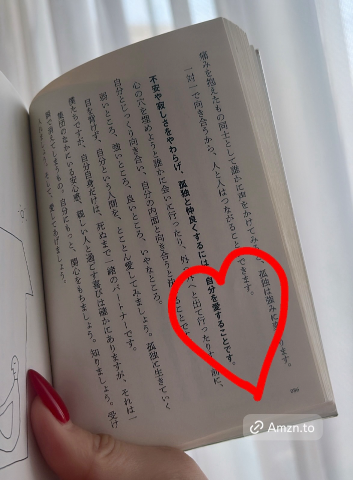 痛みを抱えたもの同士として誰かに声をかけてみると、孤独は強みに変ります。
一対一で向き合うから、人と人はつながることができます。
不安や寂しさをやわらげ、孤独と仲良くするには、自分を愛することです。
心の穴を埋めようと誰かに会いに行ったり、外へ外へと出て行ったりする前に、
自分とじっくり向き合い、自分の内面と向き合うことです。
弱いところ、強いところ、良いところ、いやなところ。
自分という人間を、とことん愛してみましょう。孤独に生きていく
目を背けず、
僕たちですが、自分自身だけは、死ぬまで一緒のパートナーです。
集団のなかにいる安心感、親しい人と過ごす喜びは確かにありますが、それは一
瞬で消えてしまうもの。自分にもっと、関心をもちましょう。知りましょう。受け
そして、愛してあげましょう。
Amzn.to